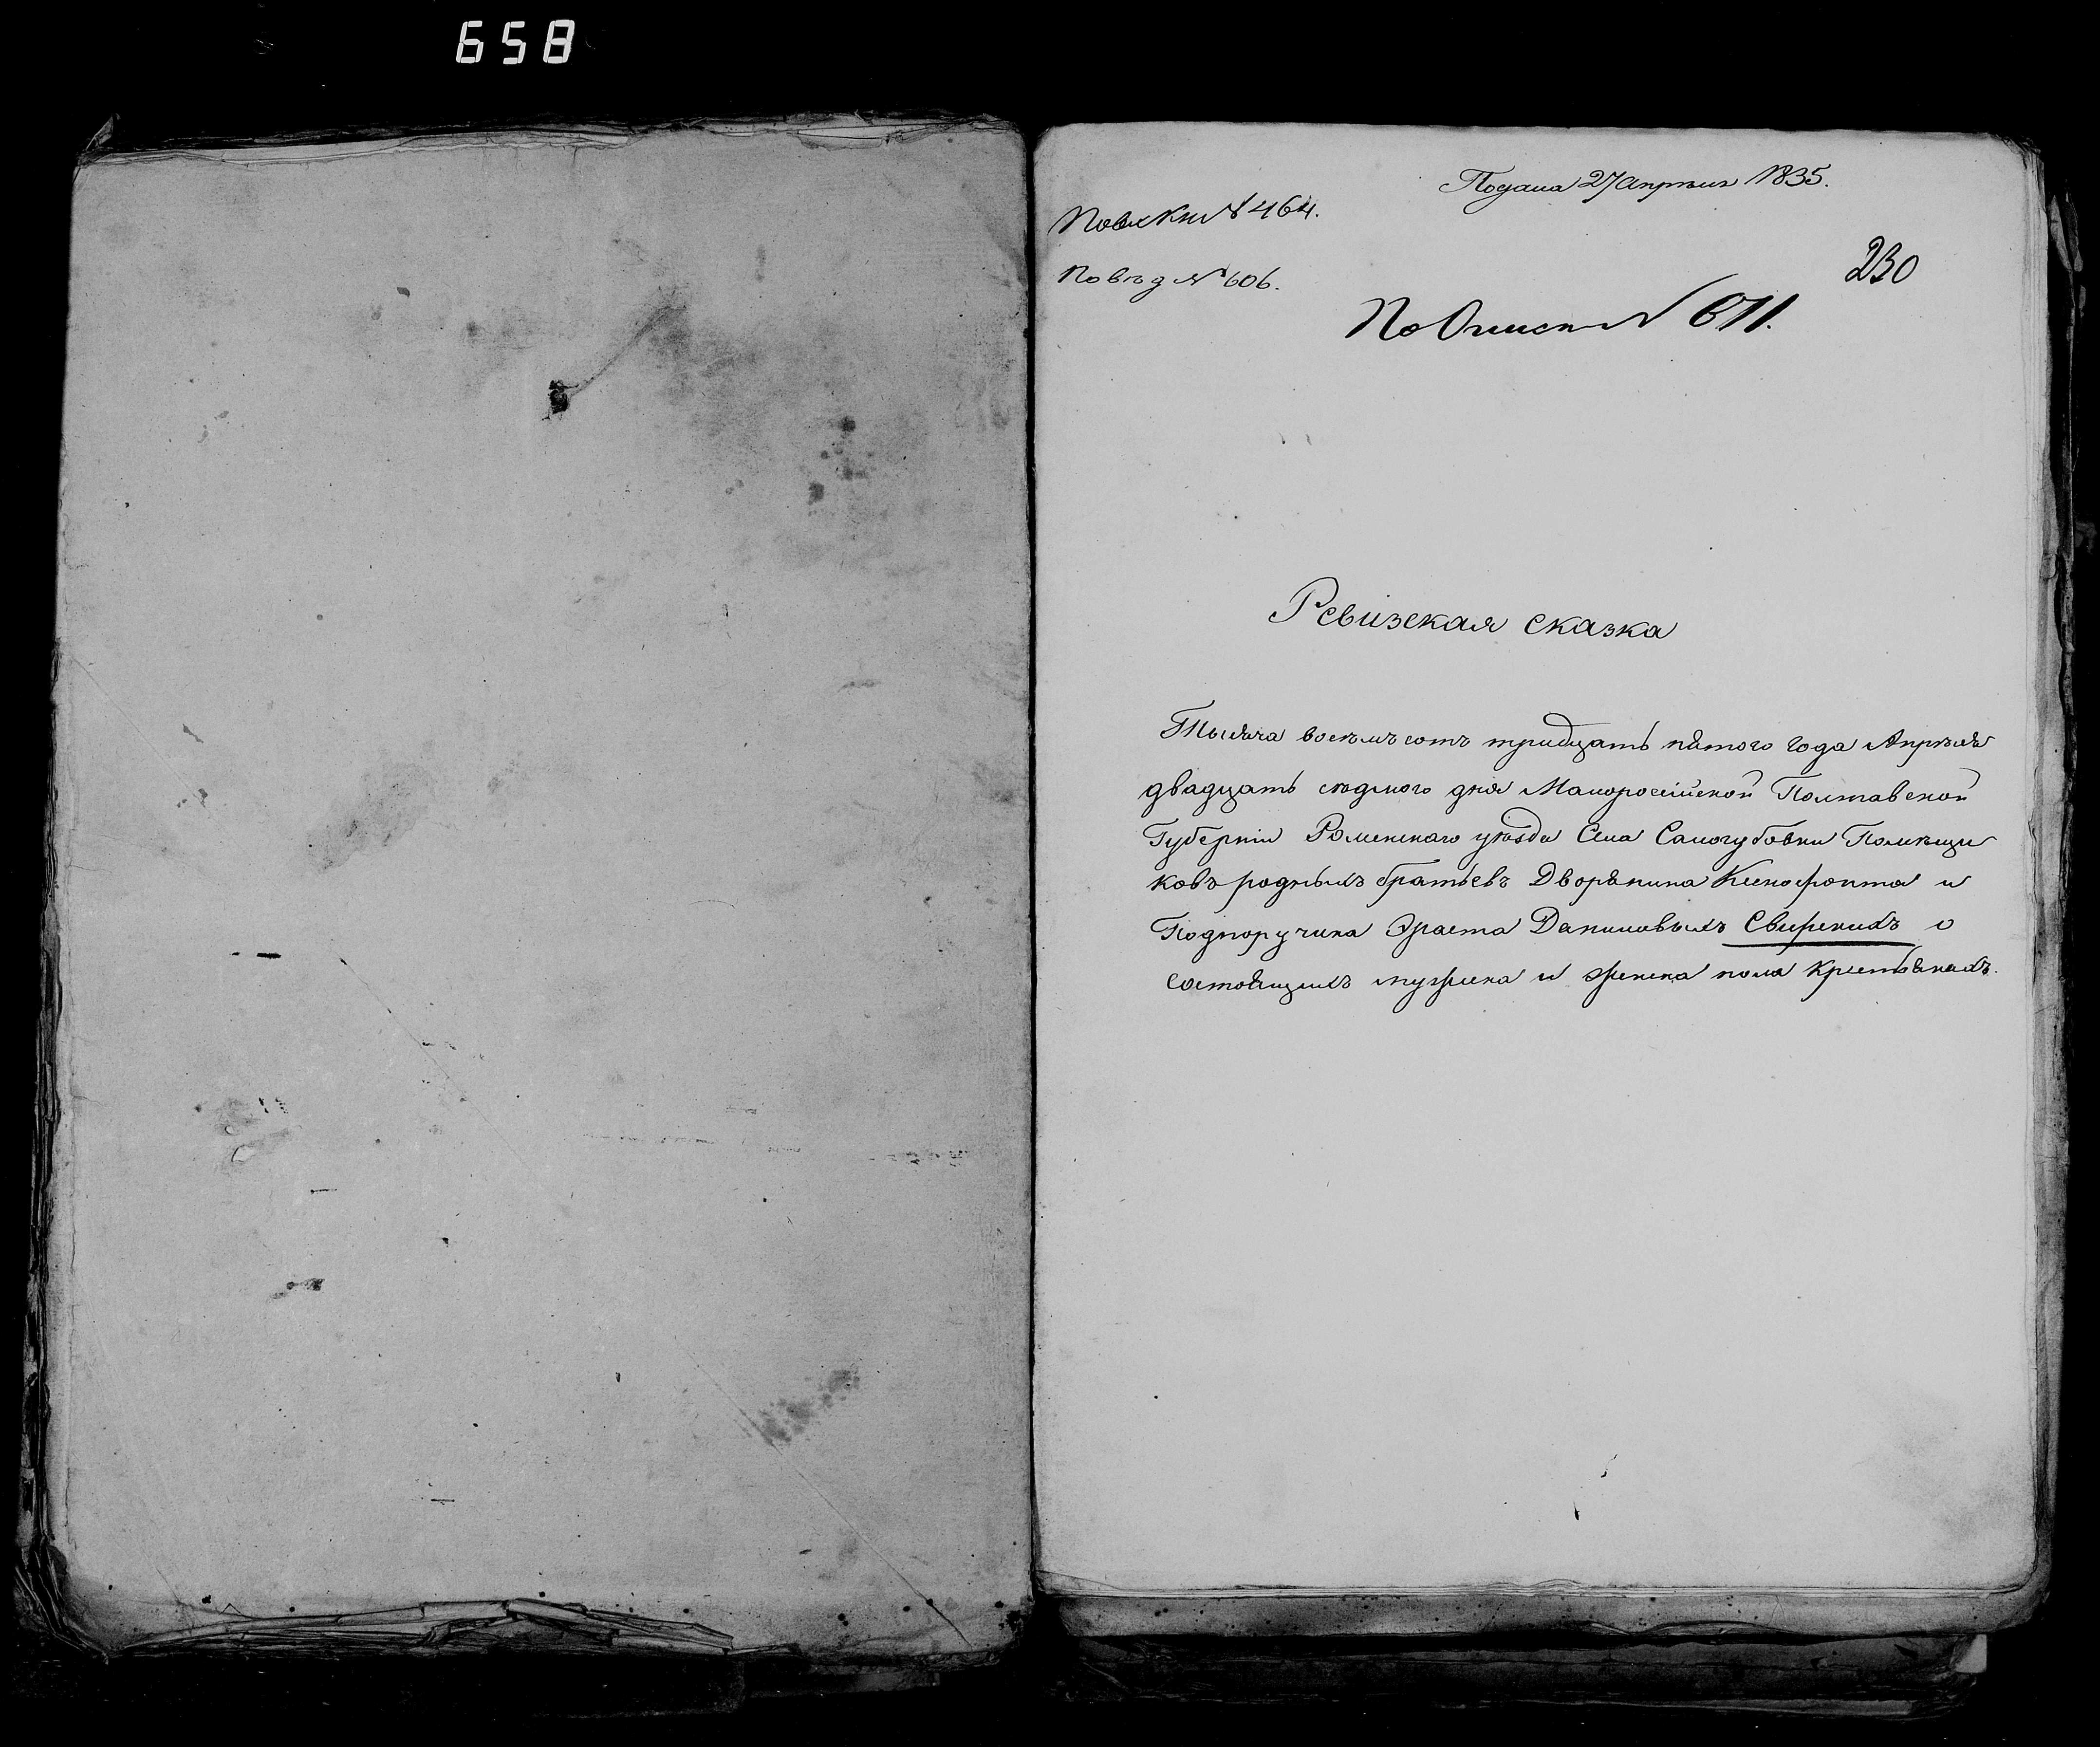 658
Подана 27 Апреля 1835.
По вх Кн № 464.
230
По вѣд № 606.
По Описи № 611.
Ревизская сказка
Тысяча восемъ сотъ тридцать пятого года Апрѣля
двадцать седмого дня Малоросейской Полтавской
Губерніи Роменскаго уѣзда Села Самогубовки Помѣщи
ковъ родныхъ братьевъ Дворянина Ксенофонта и
Подпоручика Эраста Даниловыхъ Свирскихъ о
состоящихъ мужеска и женска пола крестьянахъ.